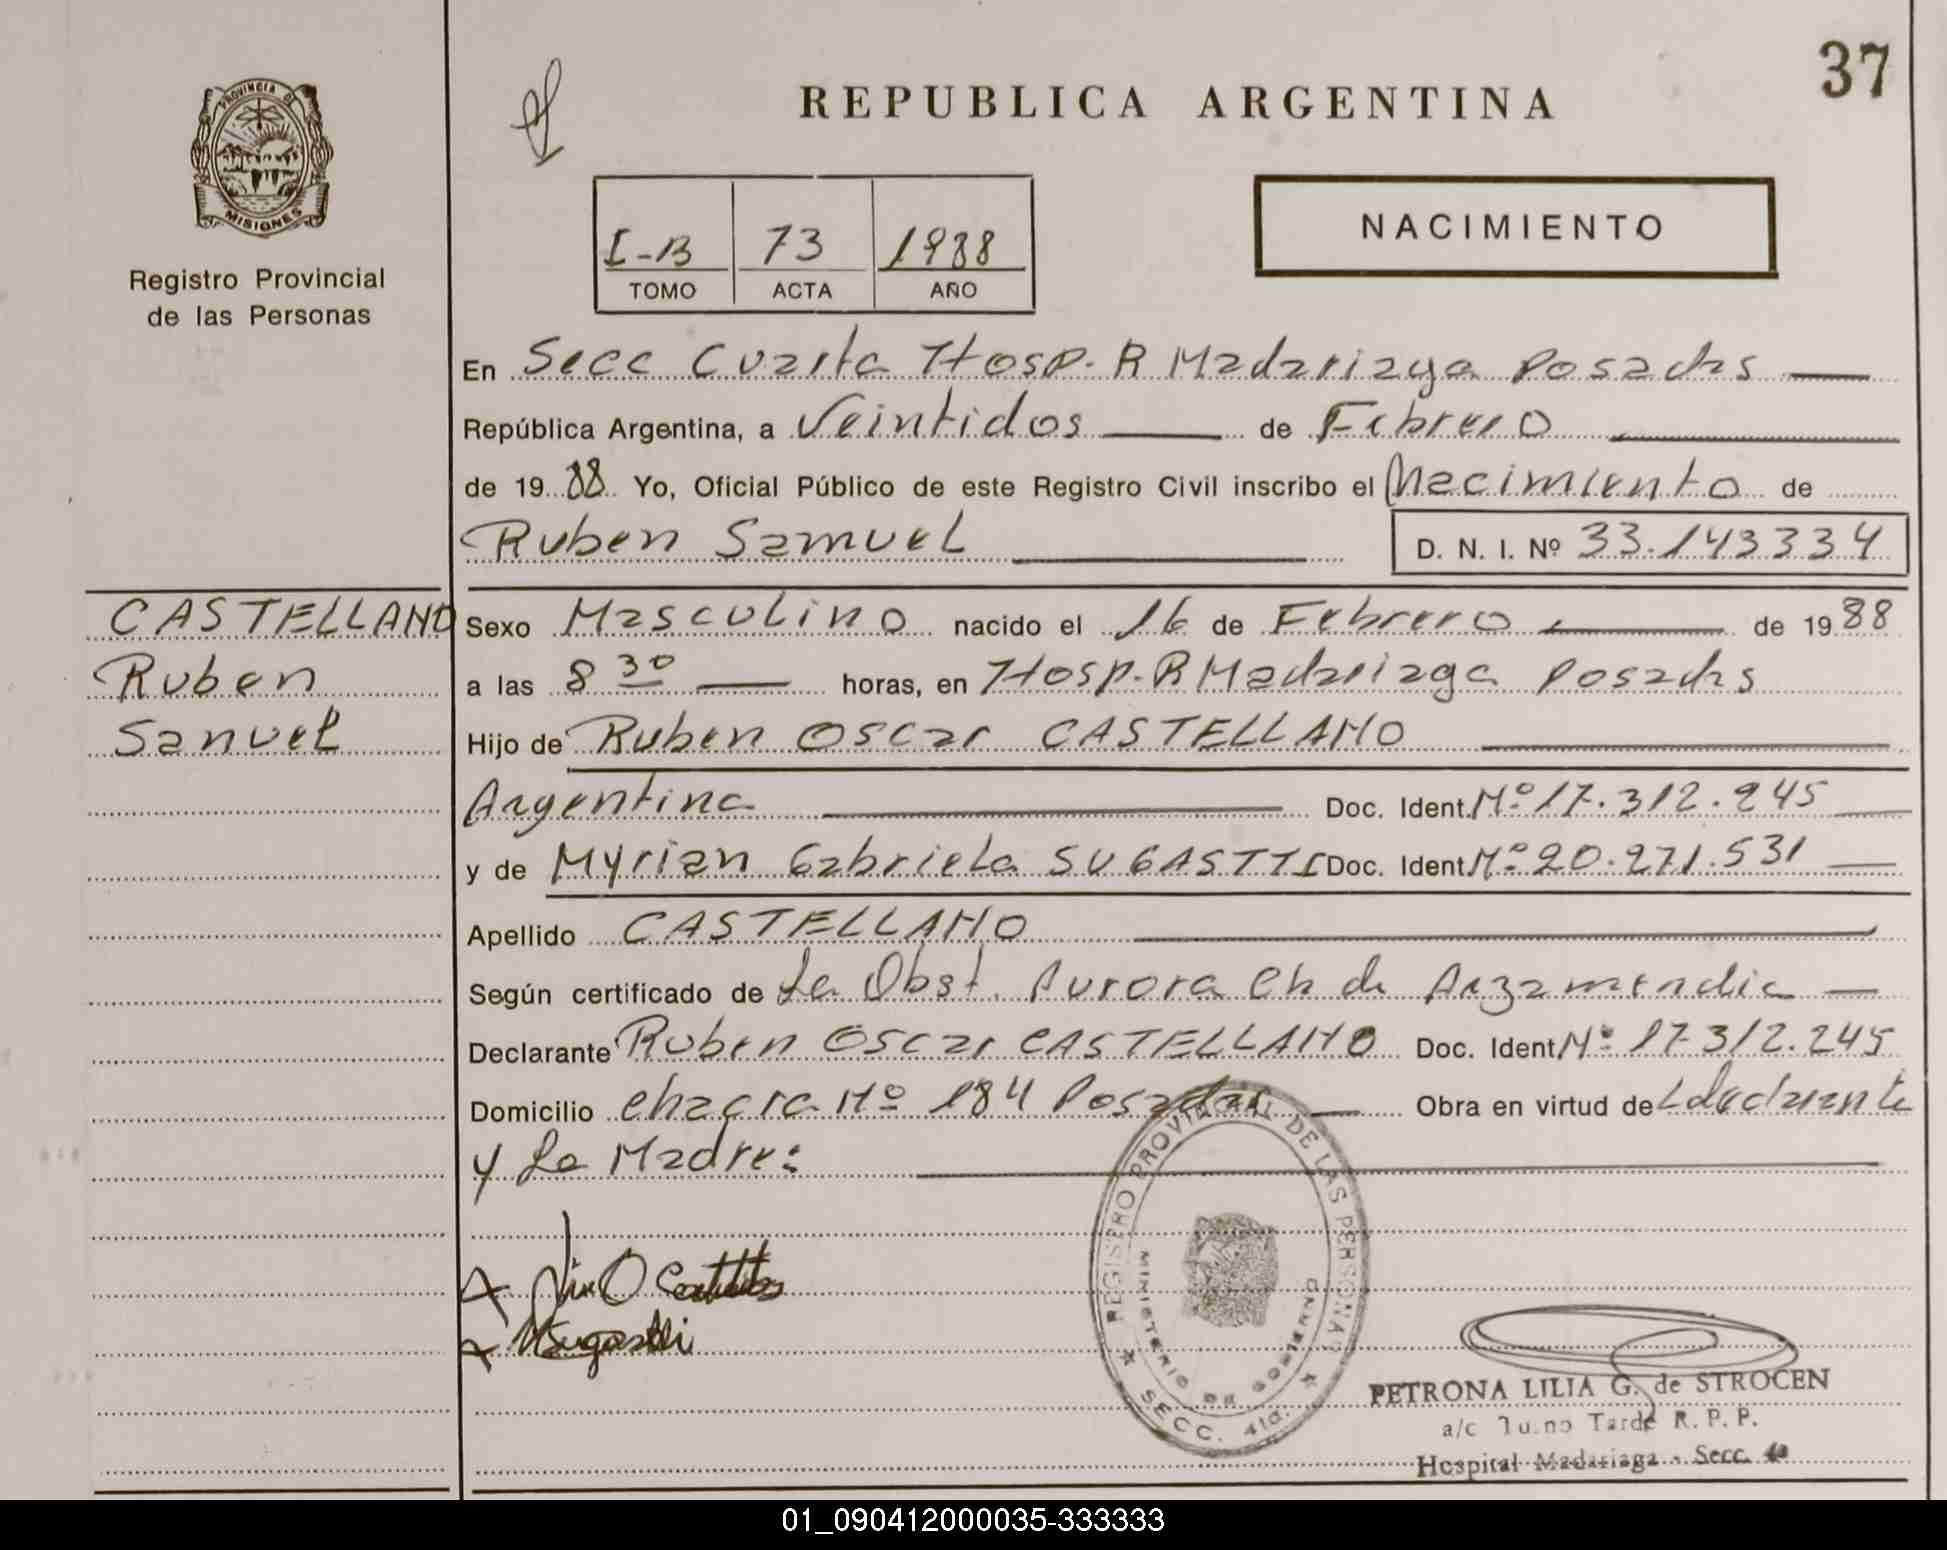 37
REPUBLICA ARGENTINA
PROVINCIA DE
MISIONES
Registro Provincial
de las Personas
I-B 73 1988
TOMO ACTA AÑO
NACIMIENTO
En Secc Cuarta Hosp. R Madariaga Posadas
República Argentina, a Veintidos de Febrero
de 1988 Yo, Oficial Público de este Registro Civil inscribo el Nacimiento de
Ruben Samuel D. N. I. Nº 33.143334
CASTELLANO
Ruben
Samuel
Sexo Masculino nacido el 16 de Febrero de 1988
a las 8 30 horas, en Hosp. R Madariaga Posadas
Hijo de Ruben Oscar CASTELLANO
Argentina Doc. Ident. Nº 17.312.245
y de Myrian Gabriela SUGASTTI Doc. Ident. Nº 20.271.531
Apellido CASTELLANO
Según certificado de La Obst. Aurora Ch de Arzamendia
Declarante Ruben Oscar CASTELLANO Doc. Ident. Nº 17.312.245
Domicilio Chacra Nº 184 Posadas Obra en virtud de
y La Madre:
REGISTRO PROVINCIAL DE LAS PERSONAS
MINISTERIO DE GOBIERNO
SECC. 4ta.
MSugastti
PETRONA LILIA G. de STROCEN
a/c Turno Tarde R. P. P.
Hospital Madariaga - Secc. 4a
01_090412000035-333333